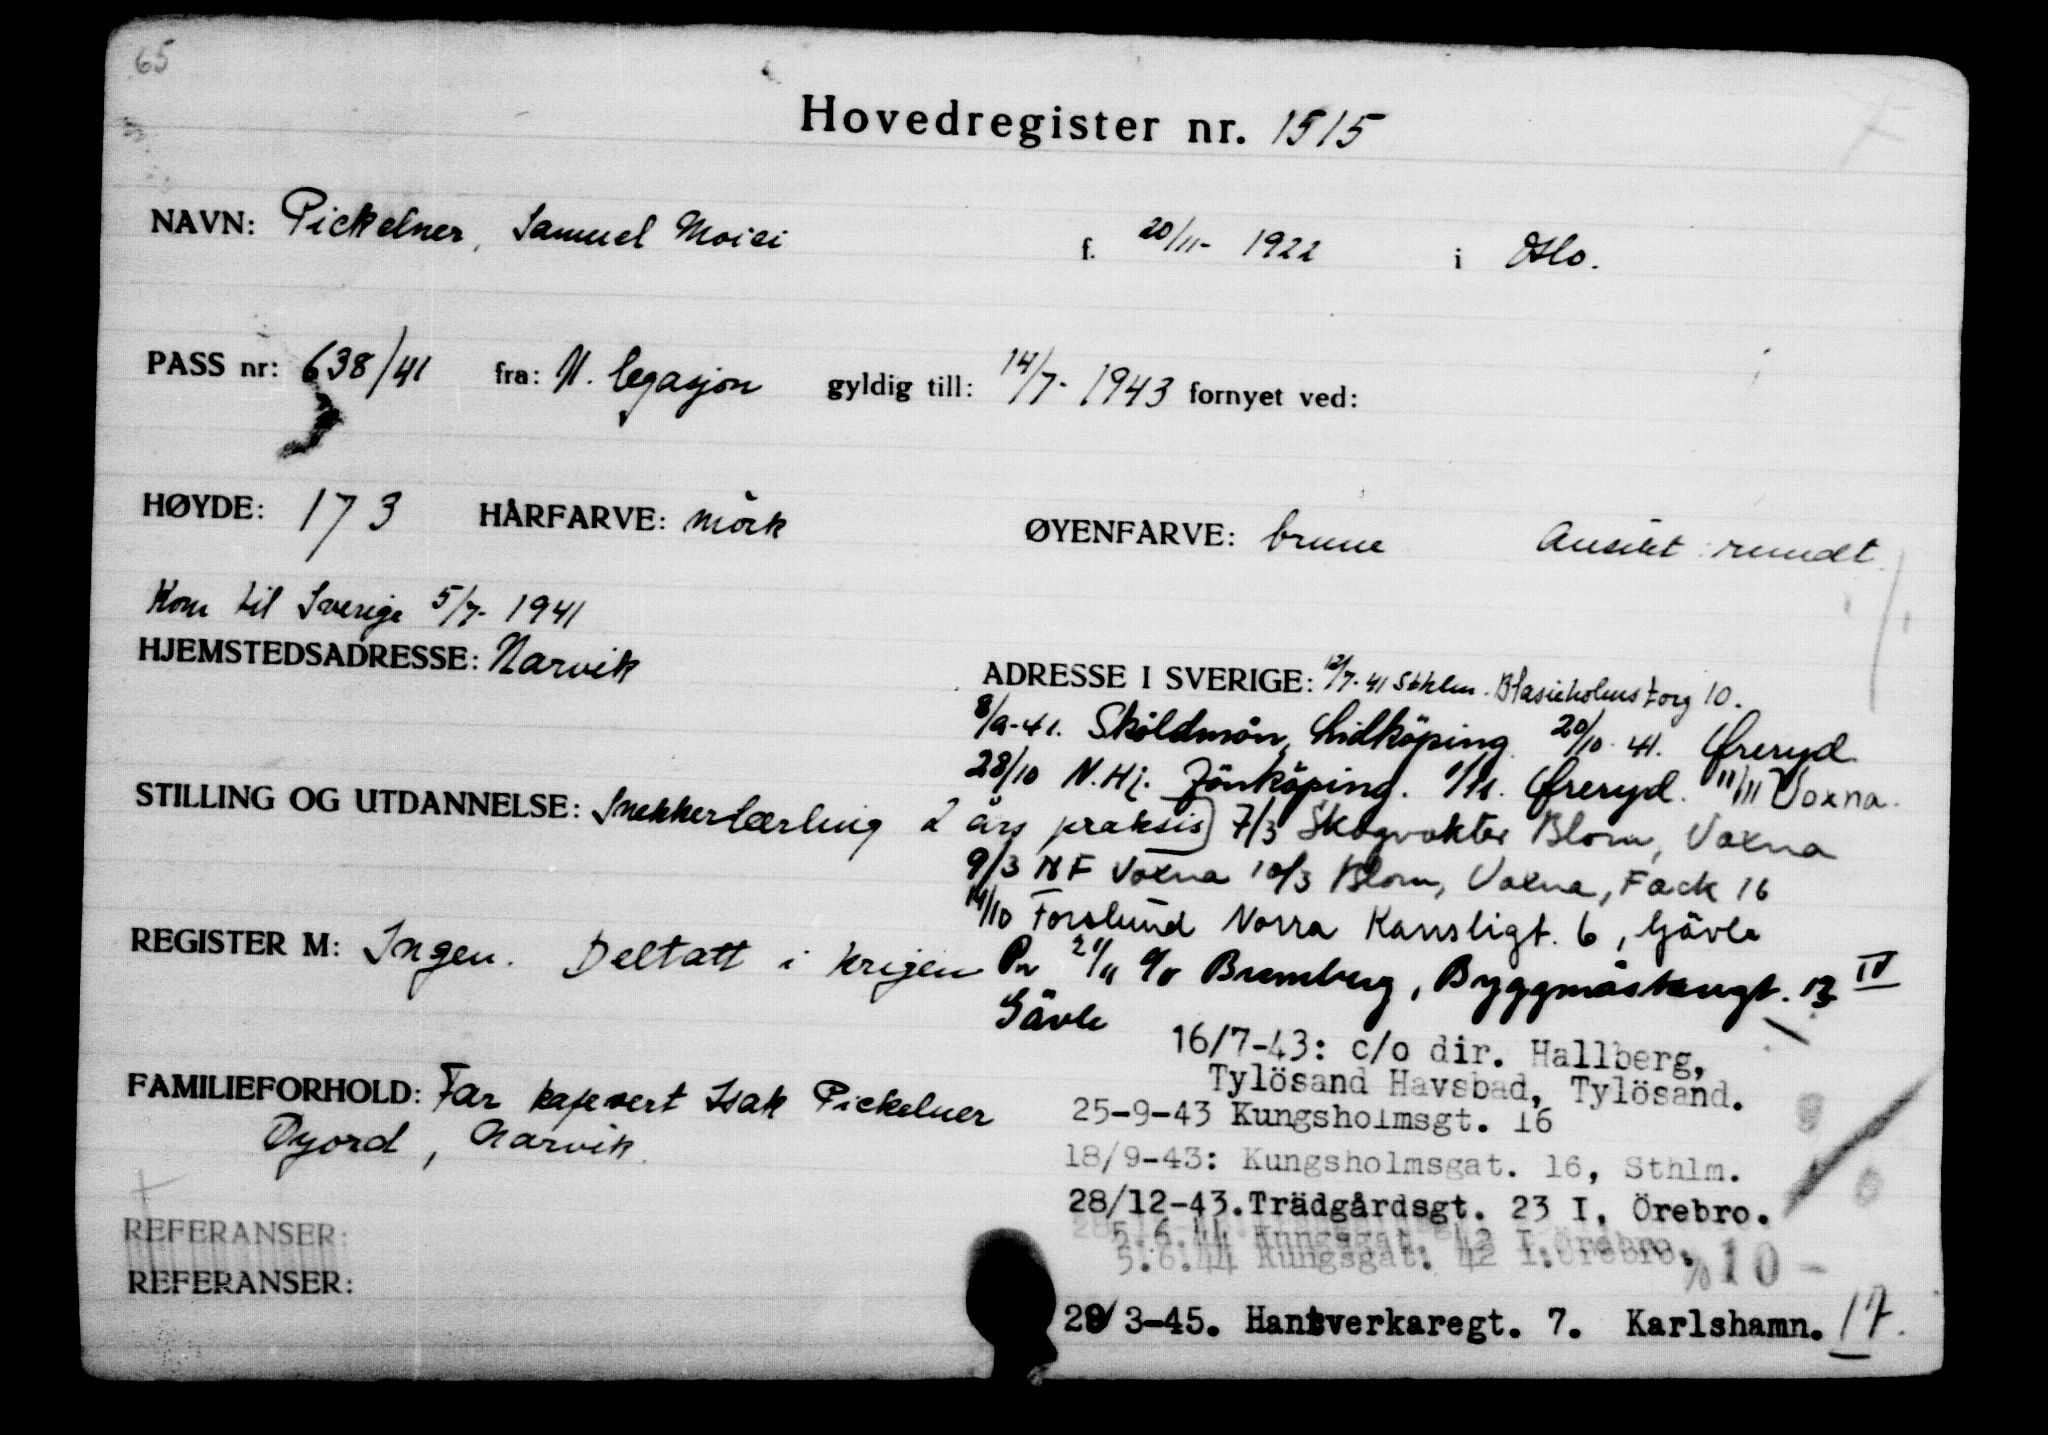 65
Hovedregister nr. 1515
NAVN: Pickelner, Samuel Moisi f. 20/11- 1922 i Oslo.
PASS nr: 638/41 fra: N. legasjon gyldig till: 14/7- 1943 fornyet ved:
HØYDE: 173 HÅRFARVE: mörk ØYENFARVE: brune Ansikt rundt.
Kom til Sverige 5/7- 1941
HJEMSTEDSADRESSE: Narvik
ADRESSE I SVERIGE: 12/7-41 Sthlm. Blasieholmstorg 10.
8/9-41. Sköldmön, Lidköping. 20/10-41. Öreryd
28/10 N.Hj. Jönköping. 1/11. Öreryd. 11/11 Voxna.
STILLING OG UTDANNELSE: Snekkerlærling 2 års praksis
7/3 Skogvakter Blom, Voxna
9/3 NF Voxna 10/3 Blom, Voxna, Fack 16
14/10 Forslund Norra Kansligt. 6, Gävle
REGISTER M: Ingen. Deltatt i krigen
21/11 c/o Bremberg, Byggmästaregt. IV
Gävle
16/7-43: c/o dir. Hallberg,
Tylösand Havsbad, Tylösand.
FAMILIEFORHOLD: Far kafevert Isak Pickelner
Djord, Narvik.
25-9-43 Kungsholmsgt. 16
18/9-43: Kungsholmsgat. 16, Sthlm.
28/12-43. Trädgårdsgt. 23 I, Örebro.
REFERANSER:
5.6.44 Kungsgat. 42 I. Örebro.
5.6.44 Kungsgat. 42 I. Örebro.
10 -
REFERANSER:
3-45. Hantverkaregt. 7. Karlshamn. 17.